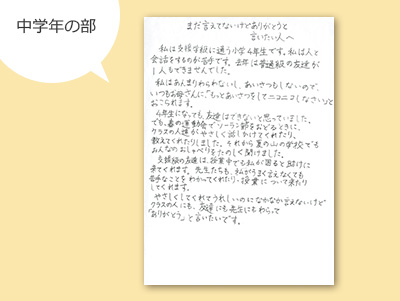 中学年の部
まだ言えてないけどありがとうと
言いたい人へ
私は支援学級に通う小学4年生です。私は人と
会話をするのが苦手です。去年は普通級の友達が
1人もできませんでした。
私はあんまりわらわないし、あいさつもしないので、
いつもお母さんに、「もっとあいさつをしてニコニコしなさい」と
おこられます。
4年生になっても、友達はできないと思っていました。
でも、春の運動会でソーラン節をおどるときに、
クラスの人達がやさしく話しかけてくれたり、
教えてくれたりしました。それから夏の山の学校でも
みんなのおしゃべりをたのしく聞けました。
支援級の友達は、授業中でも私が困ると助けに
来てくれます。先生たちも、私がうまく言えなくても
苦手なことをわかってくれたり、授業について来たり
してくれます。
やさしくしてくれてうれしいのになかなか言えないけど
クラスの人にも、友達にも先生にもわらって
「ありがとう」と言いたいです。